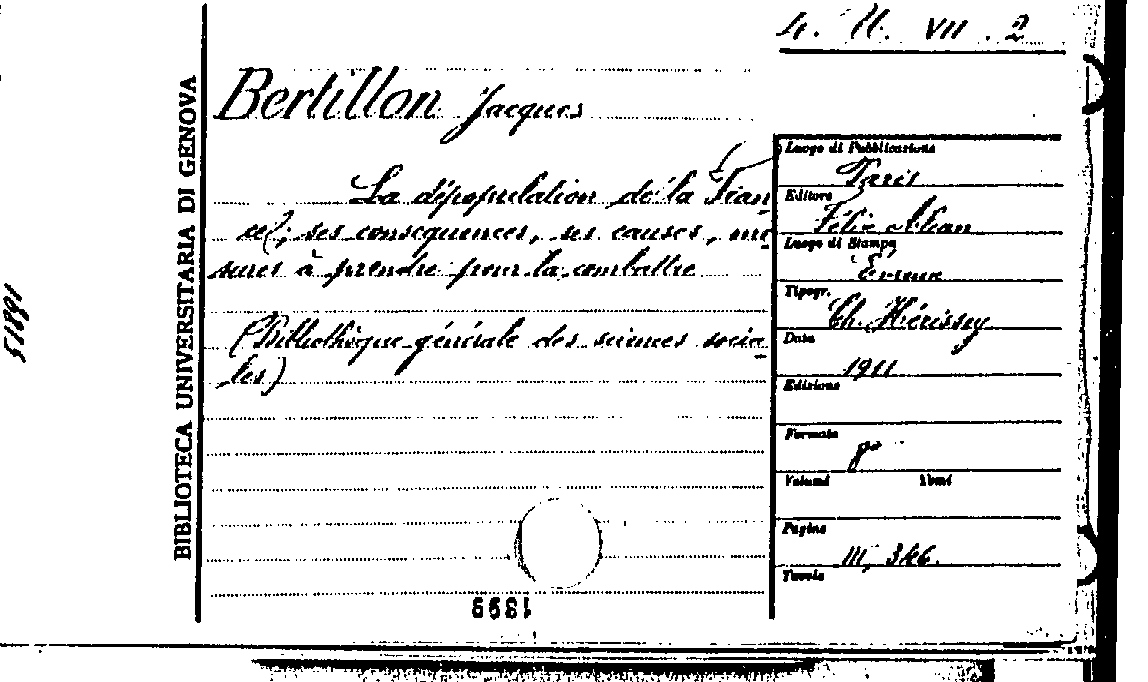 4. U. VII. 2
BIBLIOTECA UNIVERSITARIA DI GENOVA
51891
Bertillon Jacques
La dépopulation de la Fran
ce; ses consequences, ses causes, me
sures à prendre pour la combattre
(Bibliothèque générale des sciences socia
les)
Luogo di Pubblicazione
Paris
Editore
Félix Alcan
Luogo di Stampa
Evreux
Tipogr.
Ch. Hérissey
Data
1911
Edizione
Formato
8°
Volumi Tomi
Pagine
III, 346.
Tavole
1899